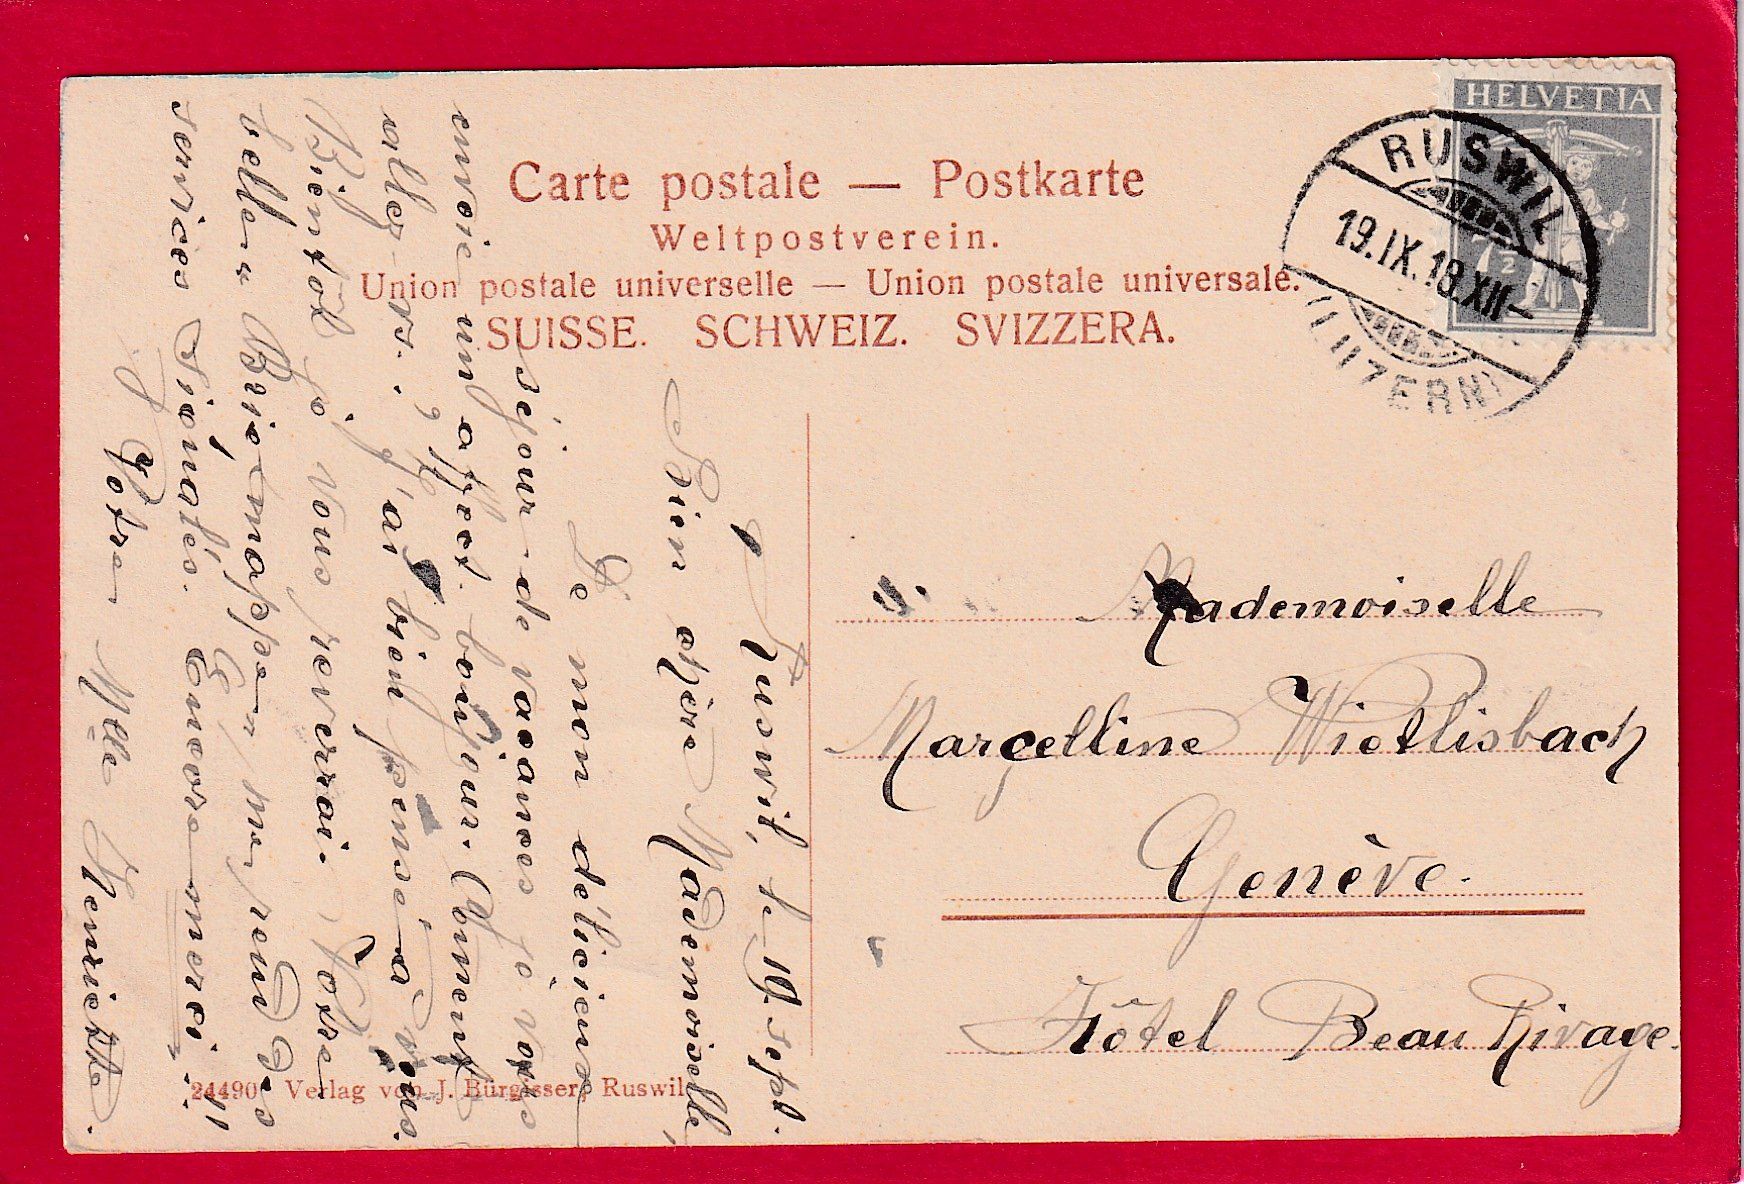 Carte postale — Postkarte
Weltpostverein.
Union postale universelle — Union postale universale.
SUISSE. SCHWEIZ. SVIZZERA.
HELVETIA
7½
RUSWIL
19.IX.18.XII-
(LUZERN)
Mademoiselle
Marcelline Wietlisbach
Genève.
Hôtel Beau Rivage.
Ruswil, le 19. sept.
Bien chère Mademoiselle,
De mon délicieux
séjour de vacances je vous
envoie un affect. bonjour. Comment
allez-vs. ? J'ai bien pensé à vous.
Bientôt je vous reverrai. Votre
belle " " me rend des
services signalés. Encore merci!!
Votre Mlle Henriette.
24490 Verlag von J. Bürgisser, Ruswil